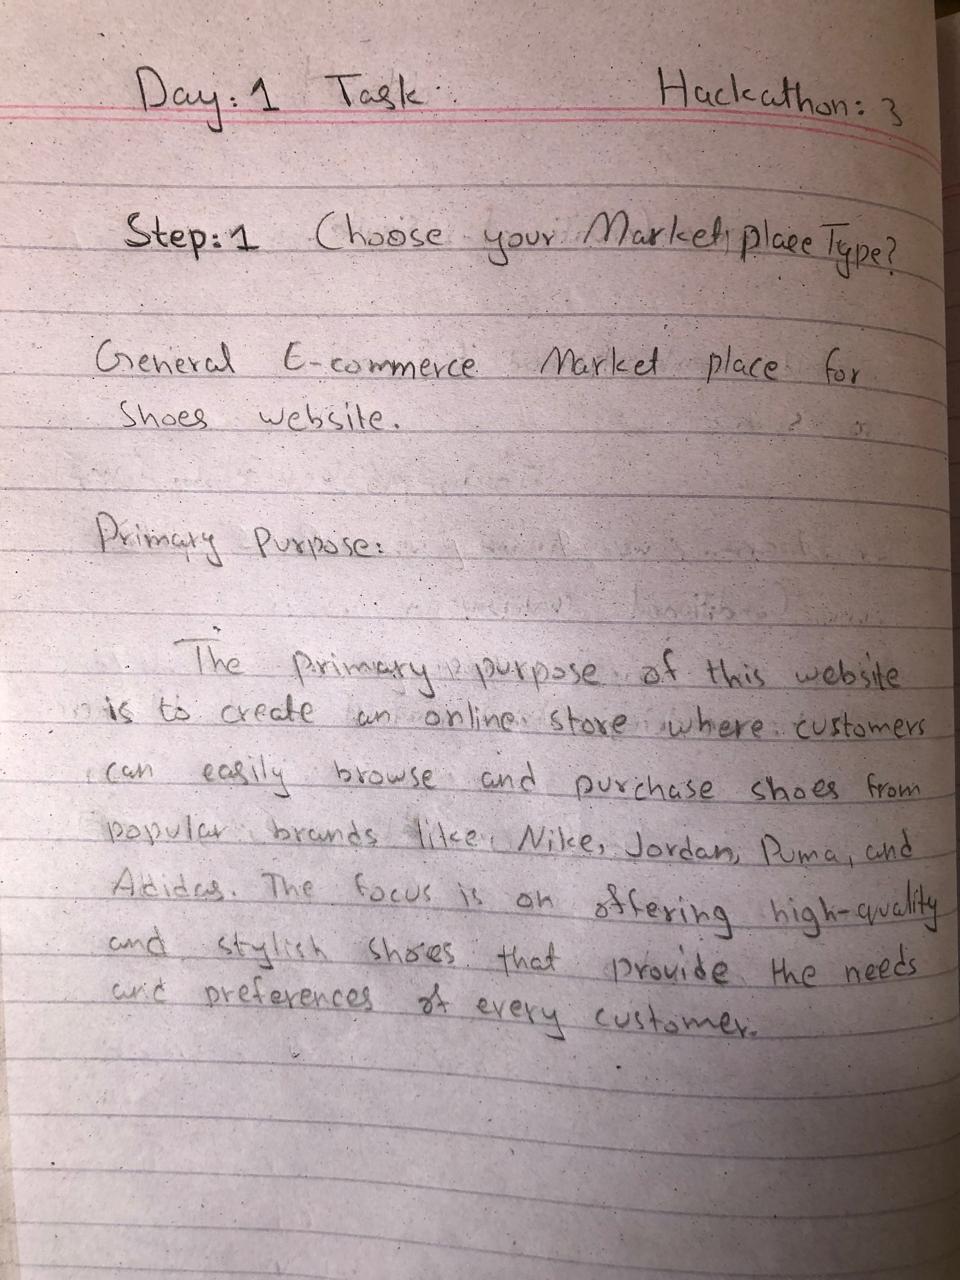 Day: 1 Task Hackathon: 3
Step: 1 Choose your Market place Type?
General E-commerce Market place for
shoes website.
Primary Purpose:
The primary purpose of this website
is to create an online store where customers
can easily browse and purchase shoes from
popular brands like, Nike, Jordan, Puma, and
Adidas. The focus is on offering high-quality
and stylish shoes that provide the needs
and preferences of every customer.